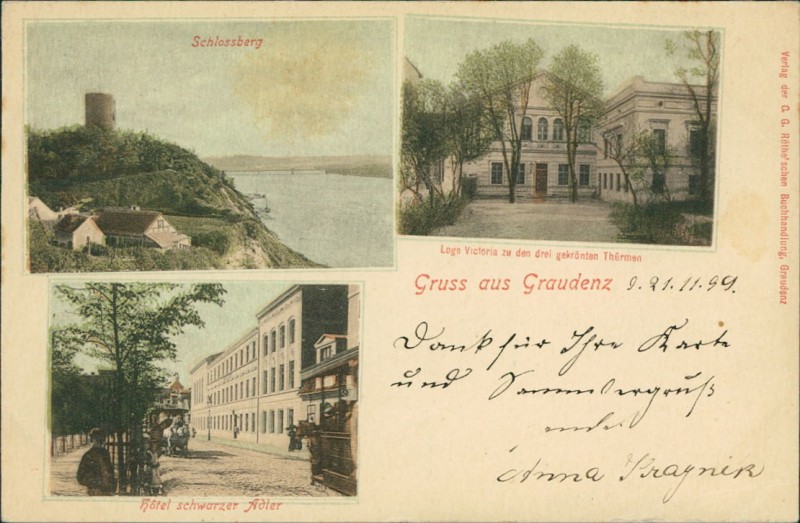 Schlossberg
Loge Victoria zu den drei gekrönten Thürmen
Verlag der G. G. Röthe'schen Buchhandlung, Graudenz
Gruss aus Graudenz 21.11.99.
Dank für Ihre Karte
und Sammlergruß
Anna
Hôtel schwarzer Adler